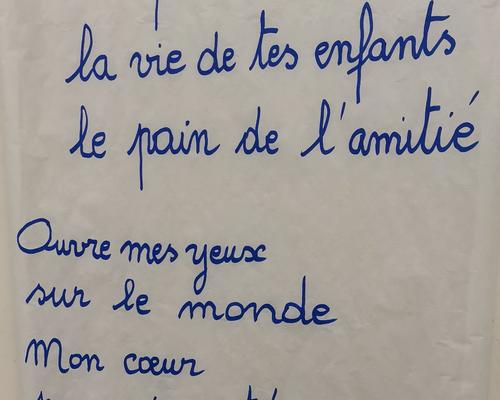 la vie de tes enfants
le pain de l'amitié
Ouvre mes yeux
sur le monde
Mon cœur